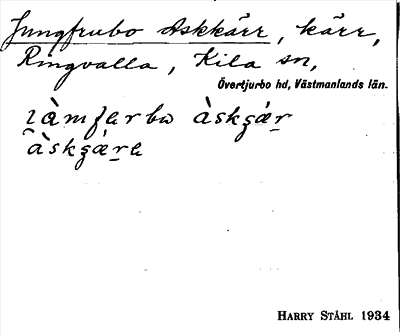 Jungfrubo Askkärr, kärr,
Ringvalla, Kila sn,
Övertjurbo hd, Västmanlands län.
àskgǽr̲
àskgǽr̲a
HARRY STÅHL 1934